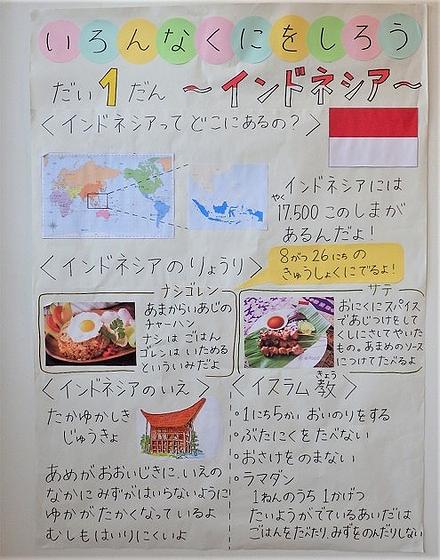 いろんなくにをしろう
だい1だん 〜インドネシア〜
〈インドネシアってどこにあるの？〉
インドネシアには
やく
17.500 このしまが
あるんだよ！
〈インドネシアのりょうり〉
8がつ26にちの
きゅうしょくにでるよ！
ナシゴレン
あまからいあじの
チャーハン
ナシは ごはん
ゴレンは いためる
といういみだよ
サテ
おにくにスパイス
であじつけをして
くしにさしてやいた
もの。あまめのソース
につけてたべるよ
〈インドネシアのいえ〉
たかゆかしき
じゅうきょ
あめがおおいじきに、いえの
なかに みずがはいらないように
ゆかが たかくなっているよ
むしもはいりにくいよ
きょう
〈イスラム教〉
◦1にち5かい おいのりをする
◦ぶたにくを たべない
◦おさけをのまない
◦ラマダン
1ねんのうち 1かげつ
たいようがでているあいだは
ごはんをたべたり、みずをのんだりしない